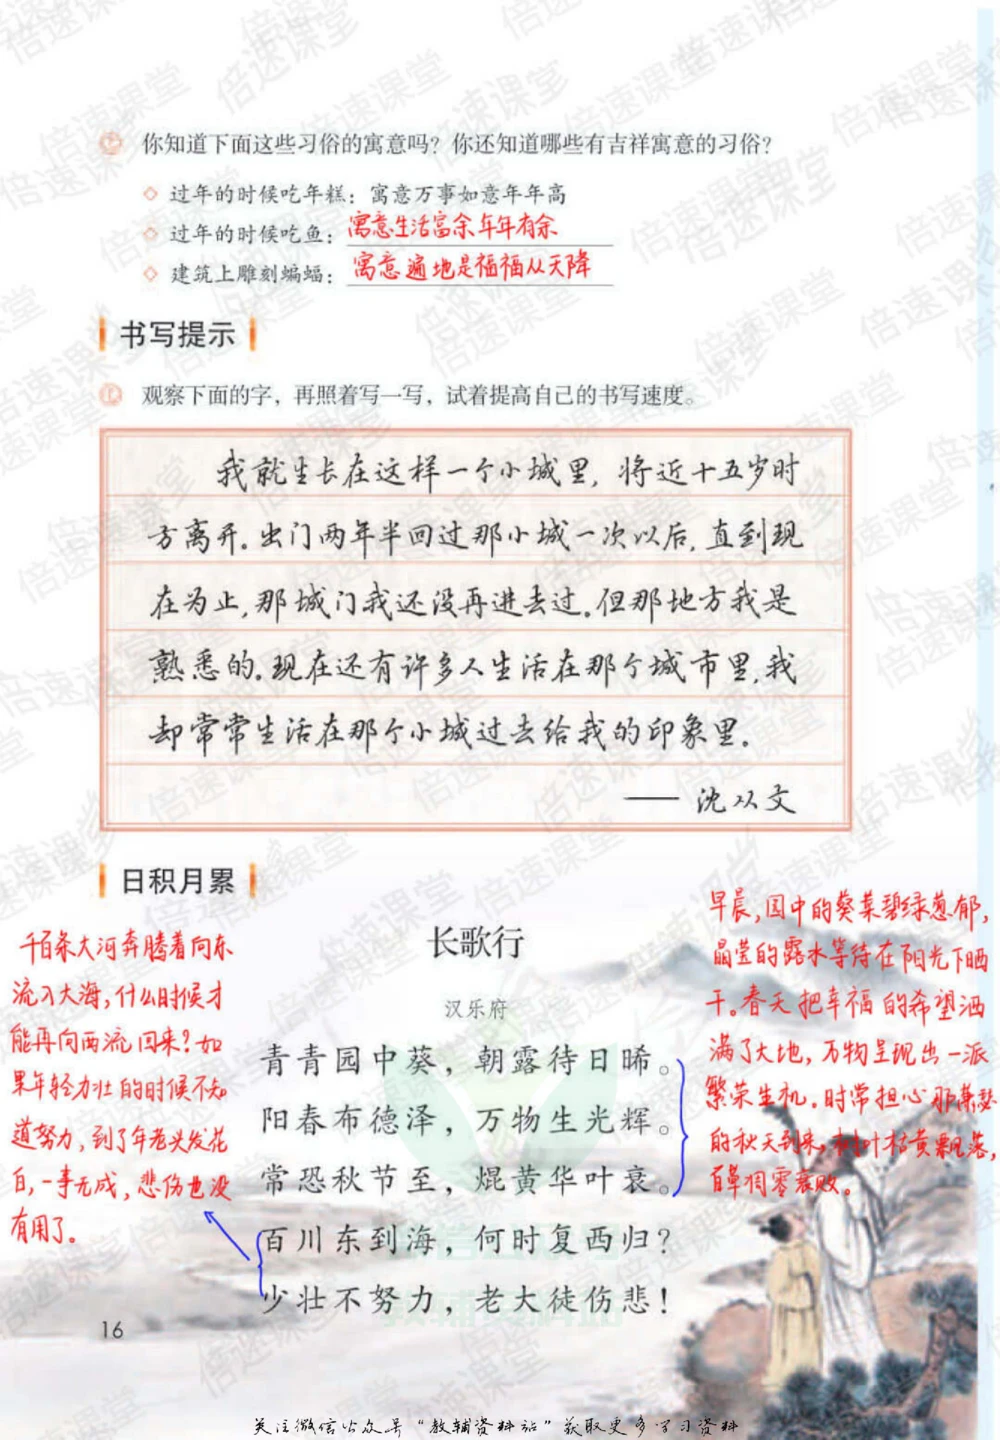 你知道下面这些习俗的寓意吗？你还知道哪些有吉祥寓意的习俗？
◇ 过年的时候吃年糕：寓意万事如意年年高
◇ 过年的时候吃鱼：寓意生活富余年年有余
◇ 建筑上雕刻蝙蝠：寓意遍地是福福从天降
书写提示
观察下面的字，再照着写一写，试着提高自己的书写速度。
我就生长在这样一个小城里，将近十五岁时
方离开。出门两年半回过那小城一次以后，直到现
在为止，那城门我还没再进去过。但那地方我是
熟悉的。现在还有许多人生活在那个城市里，我
却常常生活在那个小城过去给我的印象里。
—— 沈从文
日积月累
长歌行
汉乐府
青青园中葵，朝露待日晞。
阳春布德泽，万物生光辉。
常恐秋节至，焜黄华叶衰。
百川东到海，何时复西归？
少壮不努力，老大徒伤悲！
千百条大河奔腾着向东
流入大海，什么时候才
能再向西流回来？如
果年轻力壮的时候不知
道努力，到了年老头发花
白，一事无成，悲伤也没
有用了。
早晨，园中的葵菜碧绿葱郁，
晶莹的露水等待在阳光下晒
干。春天把幸福的希望洒
满了大地，万物呈现出一派
繁荣生机。时常担心那萧瑟
的秋天到来，树叶枯黄飘落，
百草凋零衰败。
16
关注微信公众号“教辅资料站”获取更多学习资料
倍速课堂